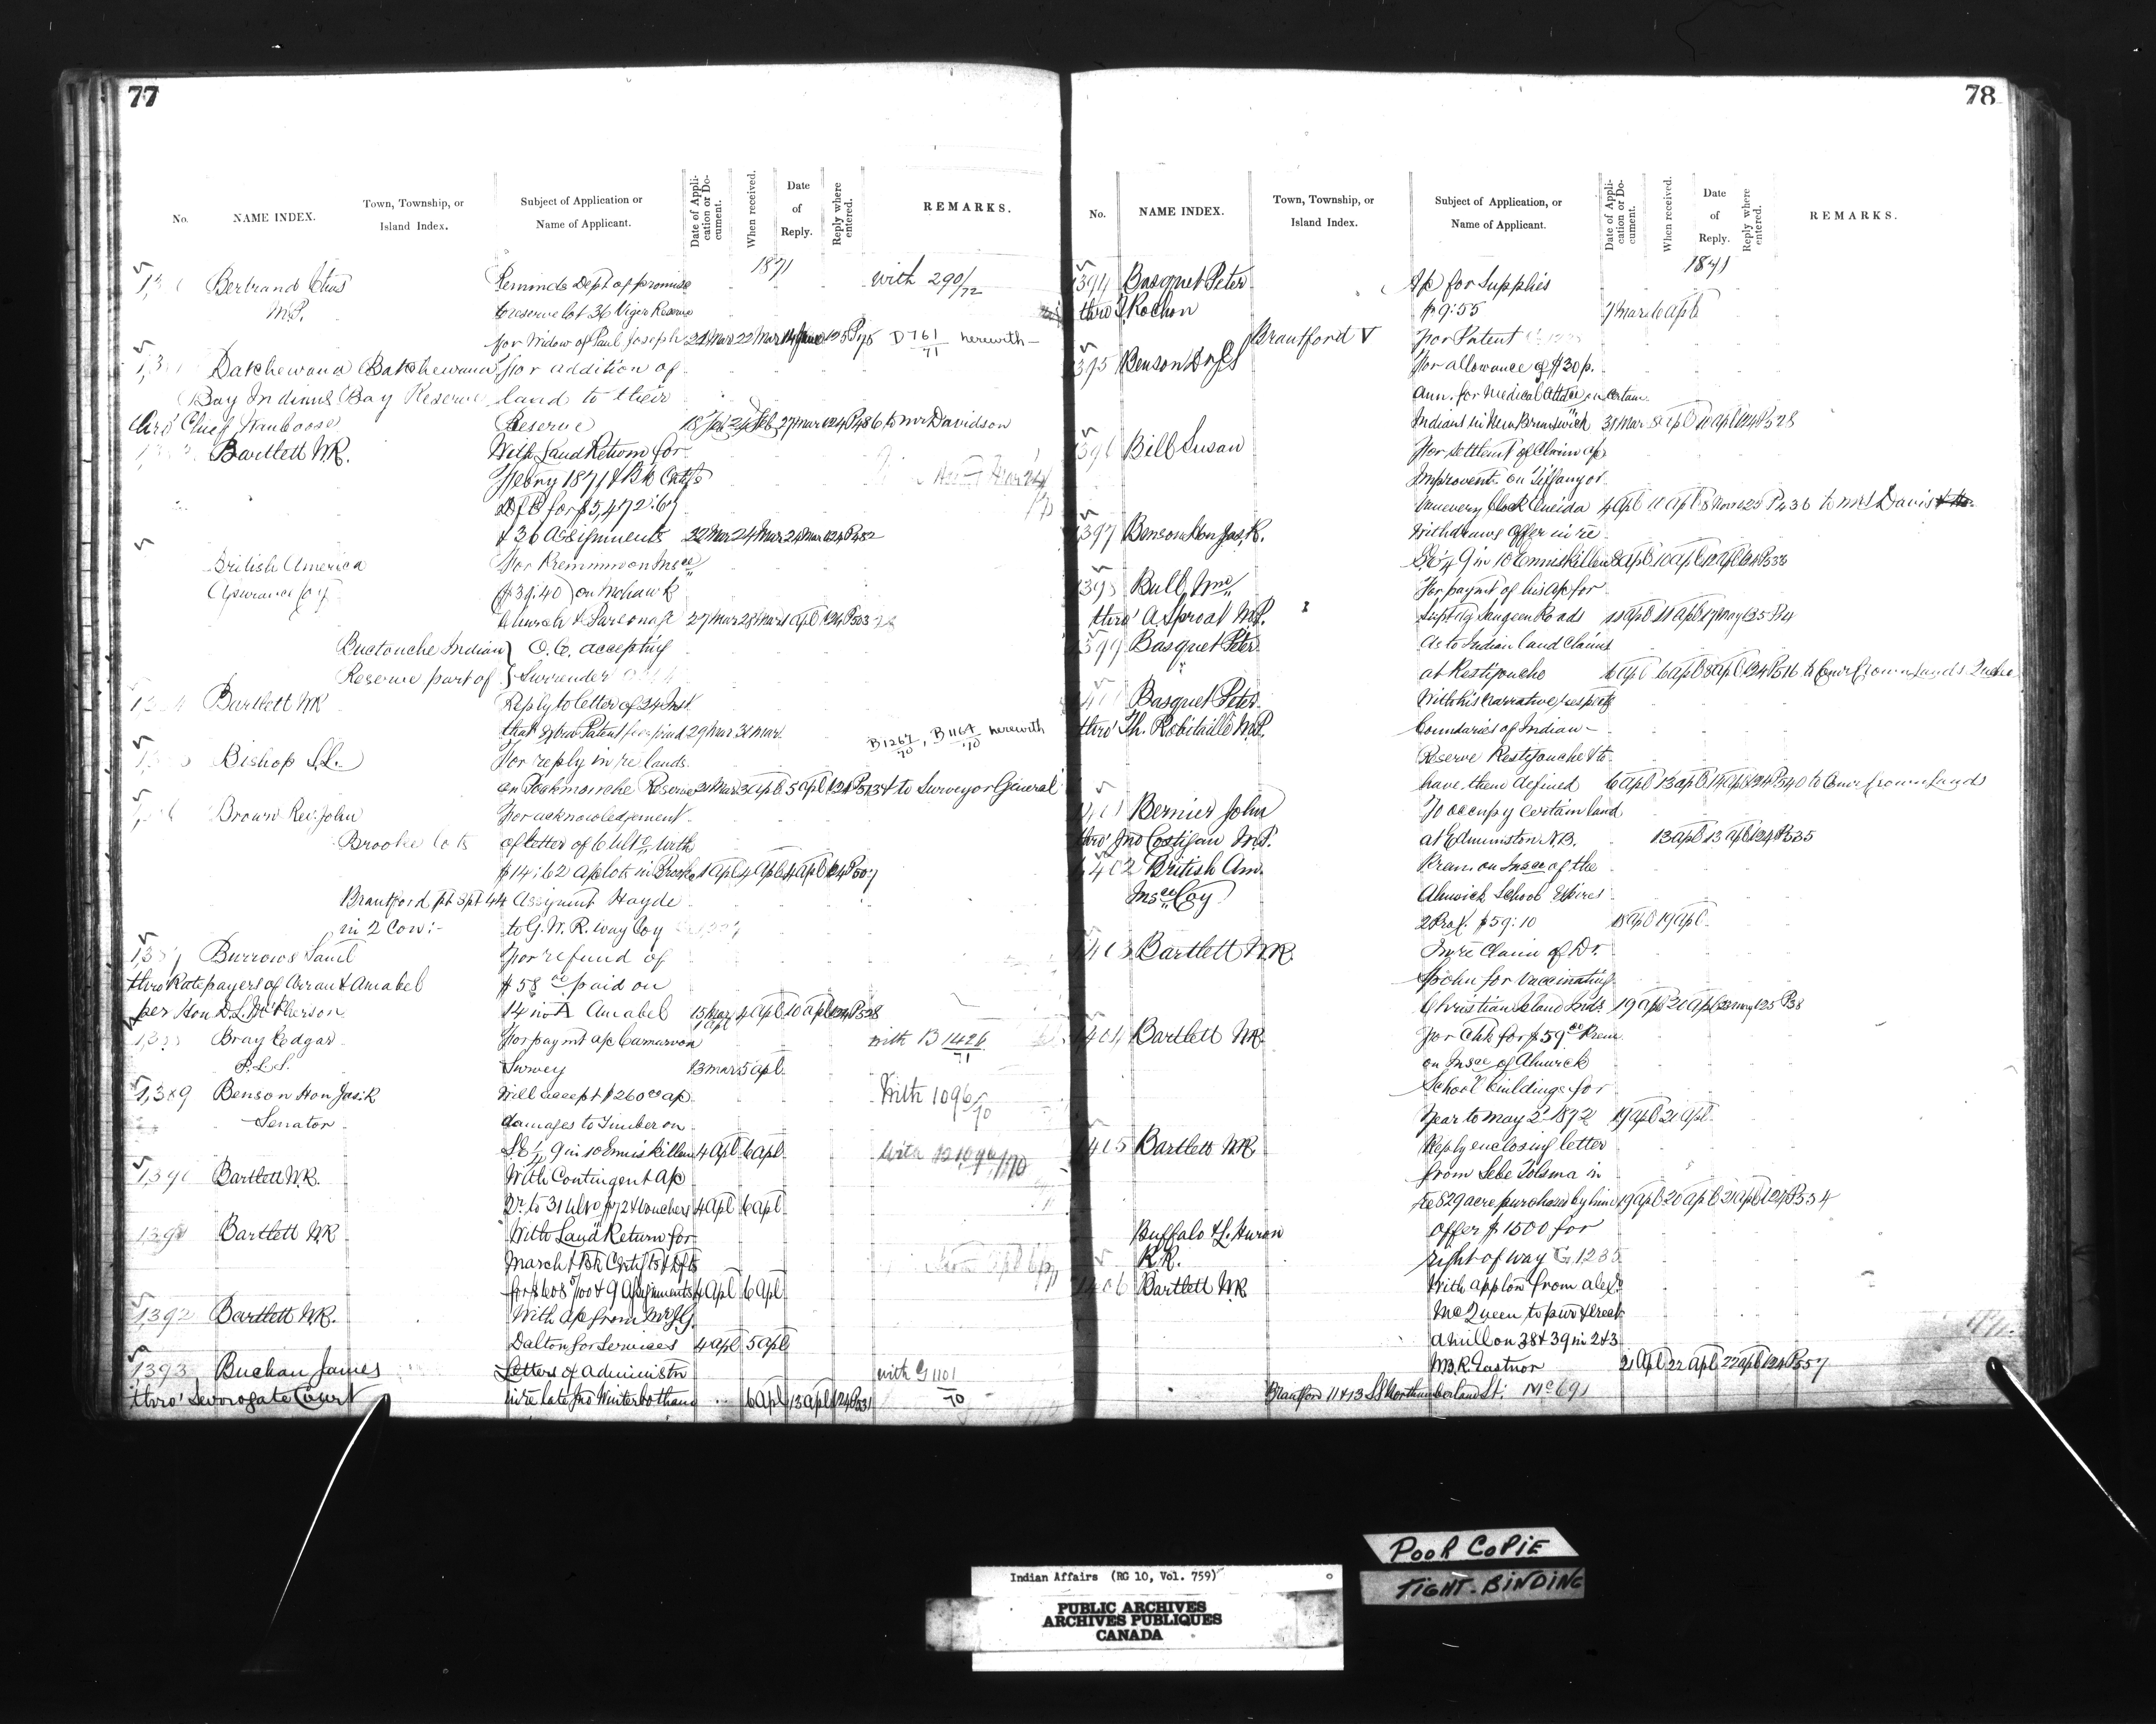 77
No. NAME INDEX. Town, Township, or Island Index. Subject of Application or Name of Applicant. Date of Application or Document. When received. Date of Reply. Reply where entered. REMARKS.
1871
Bertrand Chas Reminds Dept of promise with 290/72
M.P. to reserve lot 36 Viger Reserve
for Widow of Paul Joseph 21 Mar 22 Mar 14 June 125 P. D 761/71 herewith
Batchewana Batchewana For addition of
Bay Indians Bay Reserve land to their
thro' Chief Nauboose Reserve 18 Feb 24 Feb 27 Mar 124 P486 to Mr Davidson
Bartlett W.R. With Land Return for
Febry 1871 & Bk Certfs
Dfts for $5,472.67
& 36 Assignments 22 Mar 24 Mar 24 Mar 124 P482
British America For Premium on Insce
Assurance Coy ($39.40) on Mohawk
Church & Parsonage 27 Mar 28 Mar 1 Apl 124 P503
Buctouche Indian } O.C. accepting
Reserve part of } Surrender
Bartlett W.R. Reply to letter of 24 Inst.
that extra Patent fee paid 29 Mar 31 Mar
Bishop S.L. For reply in re lands B1267/70, B1164/70 herewith
on Tobique Reserve 31 Mar 3 Apl 5 Apl 124 P513 & to Surveyor General
Brown Rev. John For acknowledgement
Brooke lots of letter of 6 Ulto with
$14.62 ap lots in Brooke 1 Apl 4 Apl 4 Apl 124 P507
Brantford pt 3pt 44 Assignmt Hayde
in 2 Con:- to G.W.R. way Coy
1,387 Burrows Saml For refund of
thro Ratepayers of Arran & Amabel $58 paid on
per Hon D.L. McPherson 14 in A Amabel 15 Mar 1 Apl 4 Apl 10 Apl 124 P528
Bray Edgar For paymt a/c Carnarvon with B 1426/71
P.L.S. Survey 13 Mar 5 Apl
1,389 Benson Hon Jas. R Will accept $260 ap With 1096/70
Senator damages to Timber on
9 in 10 Enniskillen 4 Apl 6 Apl
1,390 Bartlett W.R. With Contingent a/c
Dr. to 31 Ulto & Vouchers 4 Apl 6 Apl
1391 Bartlett W.R. With Land Return for
March & Bk Certifs & Dfts
for $608 & 9 Assignments 4 Apl 6 Apl
1392 Bartlett W.R. With a/c from
Dalton for Services 4 Apl 5 Apl
1393 Buchan James Letters of Administn with G 1101/70
thro' Surrogate Court in re late Jno Winterbotham 6 Apl 13 Apl 124 P531
78
No. NAME INDEX. Town, Township, or Island Index. Subject of Application, or Name of Applicant. Date of Application or Document. When received. Date of Reply. Reply where entered. REMARKS.
1871
1394 Basquet Peter A/c for Supplies
thro' Rochon $9:55 7 Mar 6 Apl
Brantford V For Patent
1395 Benson Dr For allowance of $30 p.
ann. for Medical Attdce on certain
Indians in New Brunswick 31 Mar 8 Apl 10 Apl 124 P528
1396 Bill Susan For settlemt of Claim of
Improvemts on Tiffany or
Vanevery Block Oneida 4 Apl 11 Apl 8 Nov 125 P436 to Mrs Davis
1397 Benson Hon Jas. R. Withdraws Offer in re
9 in 10 Enniskillen 8 Apl 10 Apl 12 Apl 124 P533
1398 Bull Wm For paymt of his a/c for
thro' A. Sproat M.P. Suptg Saugeen Roads 11 Apl 17 May 125 P14
1399 Basquet Peter As to Indian land Claims
at Restigouche 6 Apl 6 Apl 8 Apl 124 P516 to Comr Crown Lands Quebec
Basquet Peter With his narrative respectg
thro' Th. Robitaille M.P. boundaries of Indian
Reserve Restigouche & to
have them defined 6 Apl 13 Apl 14 Apl 124 P540 to Comr Crown Lands
Bernier John To occupy certain land
thro' Jno Costigan M.P. at Edmunston N.B. 13 Apl 13 Apl 124 P535
1402 British Am. Prem. on Insce of the
Insce Coy Alnwick School Expires
2 Prox. $59:10 18 Apl 19 Apl
1403 Bartlett W.R. In re Claim of Dr.
Spohn for Vaccinating
Christian Island Inds. 19 Apl 20 Apl 22 May 125 P38
1404 Bartlett W.R. For Chk for $59 Prem
on Insce of Alnwick
School buildings for
Year to May 2 1872 19 Apl 21 Apl
1405 Bartlett W.R. Reply enclosing letter
from Sebe Tolsma in
re 829 acre purchased by him 19 Apl 20 Apl 21 Apl 124 P554
Buffalo & L. Huron Offer $1500 for
R.R. right of way G 1235
1406 Bartlett W.R. With applon from Alexr
McQueen to pur & erect
a Mill on 38 & 39 in 2 & 3
W.B.R. Eastnor 21 Apl 22 Apl 22 Apl 124 P557
Brantford 11 & 13 S.S. Northumberland St: Mc 691
POOR COPIE
TIGHT-BINDING
Indian Affairs (RG 10, Vol. 759)
PUBLIC ARCHIVES
ARCHIVES PUBLIQUES
CANADA